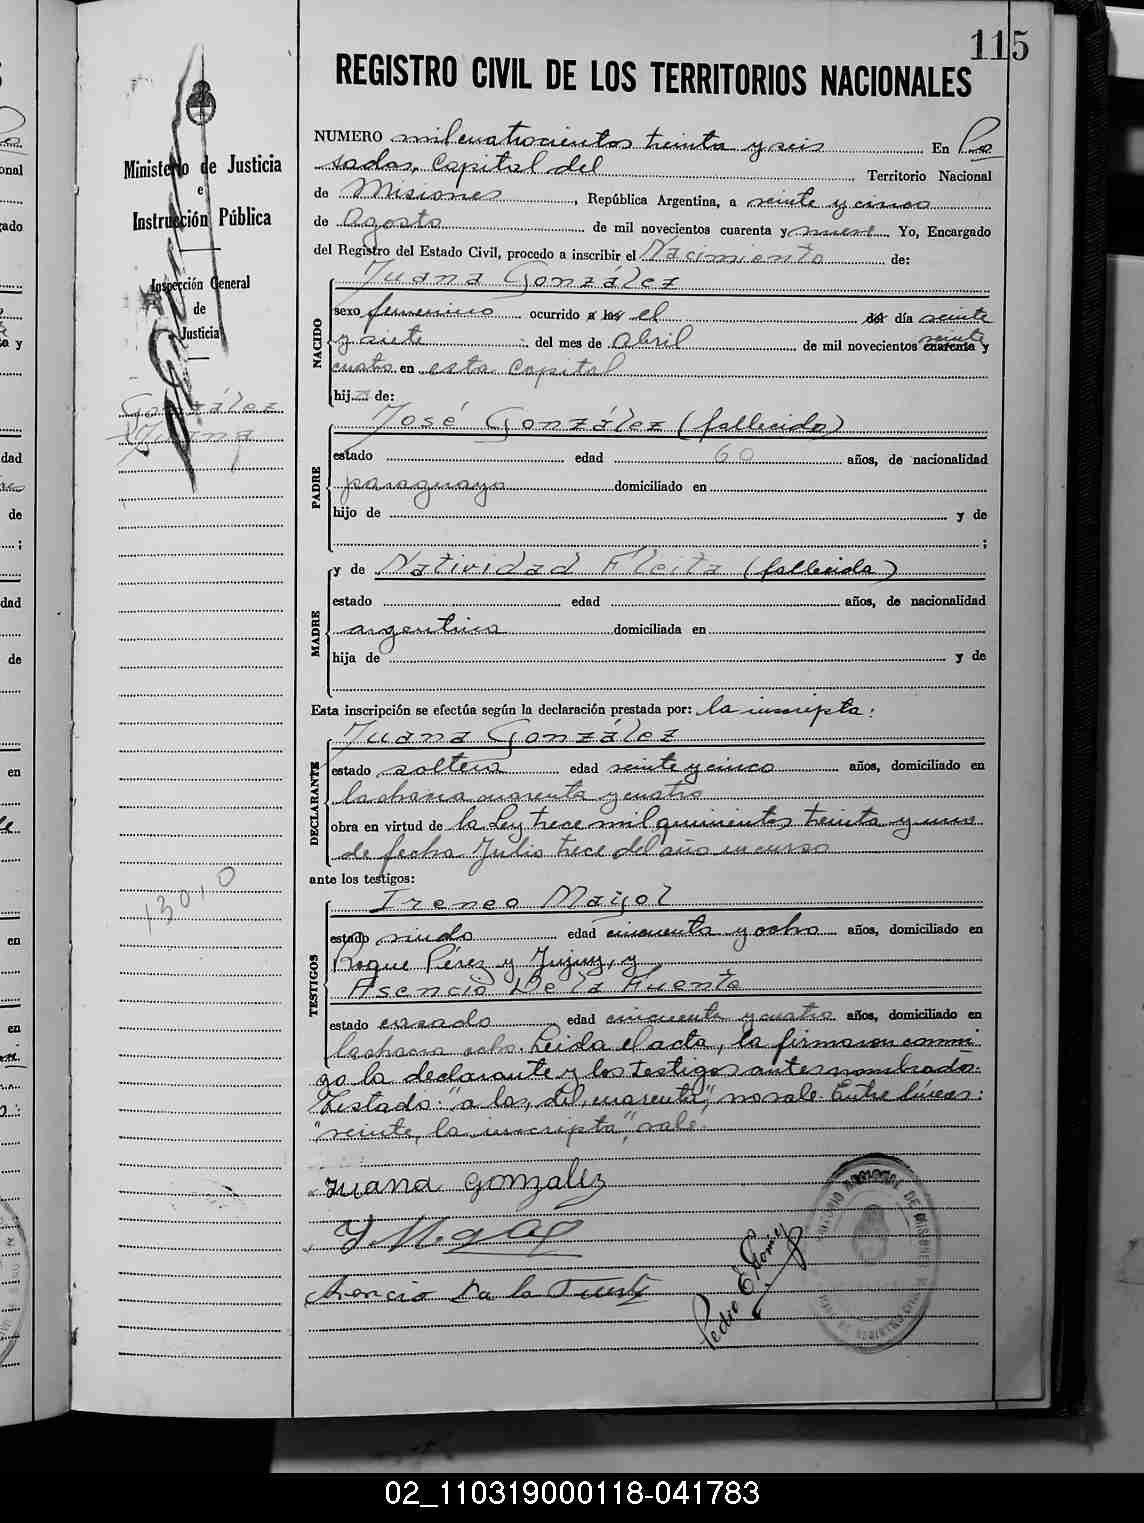 115
REGISTRO CIVIL DE LOS TERRITORIOS NACIONALES
Ministerio de Justicia
e
Instrucción Pública
Inspección General
de
Justicia
González
Juana
13010
NUMERO mil cuatrocientos treinta y seis En Po
sadas, Capital del Territorio Nacional
de Misiones, República Argentina, a veinte y cinco
de Agosto de mil novecientos cuarenta y nueve Yo, Encargado
del Registro del Estado Civil, procedo a inscribir el Nacimiento de:
NACIDO
Juana González
sexo femenino ocurrido a las el del día veinte
y siete del mes de Abril de mil novecientos cuarenta veinte y
cuatro en esta Capital
hija de:
PADRE
José González (fallecido)
estado edad 60 años, de nacionalidad
paraguayo domiciliado en
hijo de y de
;
MADRE
y de Natividad Fleita (fallecida)
estado edad años, de nacionalidad
argentina domiciliada en
hija de y de
Esta inscripción se efectúa según la declaración prestada por: la inscripta:
DECLARANTE
Juana González
estado soltera edad veinte y cinco años, domiciliado en
la chacra cuarenta y cuatro
obra en virtud de la Ley trece mil quinientos treinta y uno
de fecha Julio trece del año en curso
ante los testigos:
TESTIGOS
Ireneo Mayol
estado viudo edad cincuenta y ocho años, domiciliado en
Roque Pérez y Jujuy, y
Asencio De la Fuente
estado casado edad cincuenta y cuatro años, domiciliado en
la chacra ocho. Leida el acta, la firmaron conmi
go la declarante y los testigos antes nombrados.
Testado: "a las, del, cuarenta", no vale. Entre líneas:
"veinte, la inscripta", vale.
Juana Gonzalez
Y Mayol
Asencio Da la Fuente
Pedro E Gomez
02_110319000118-041783